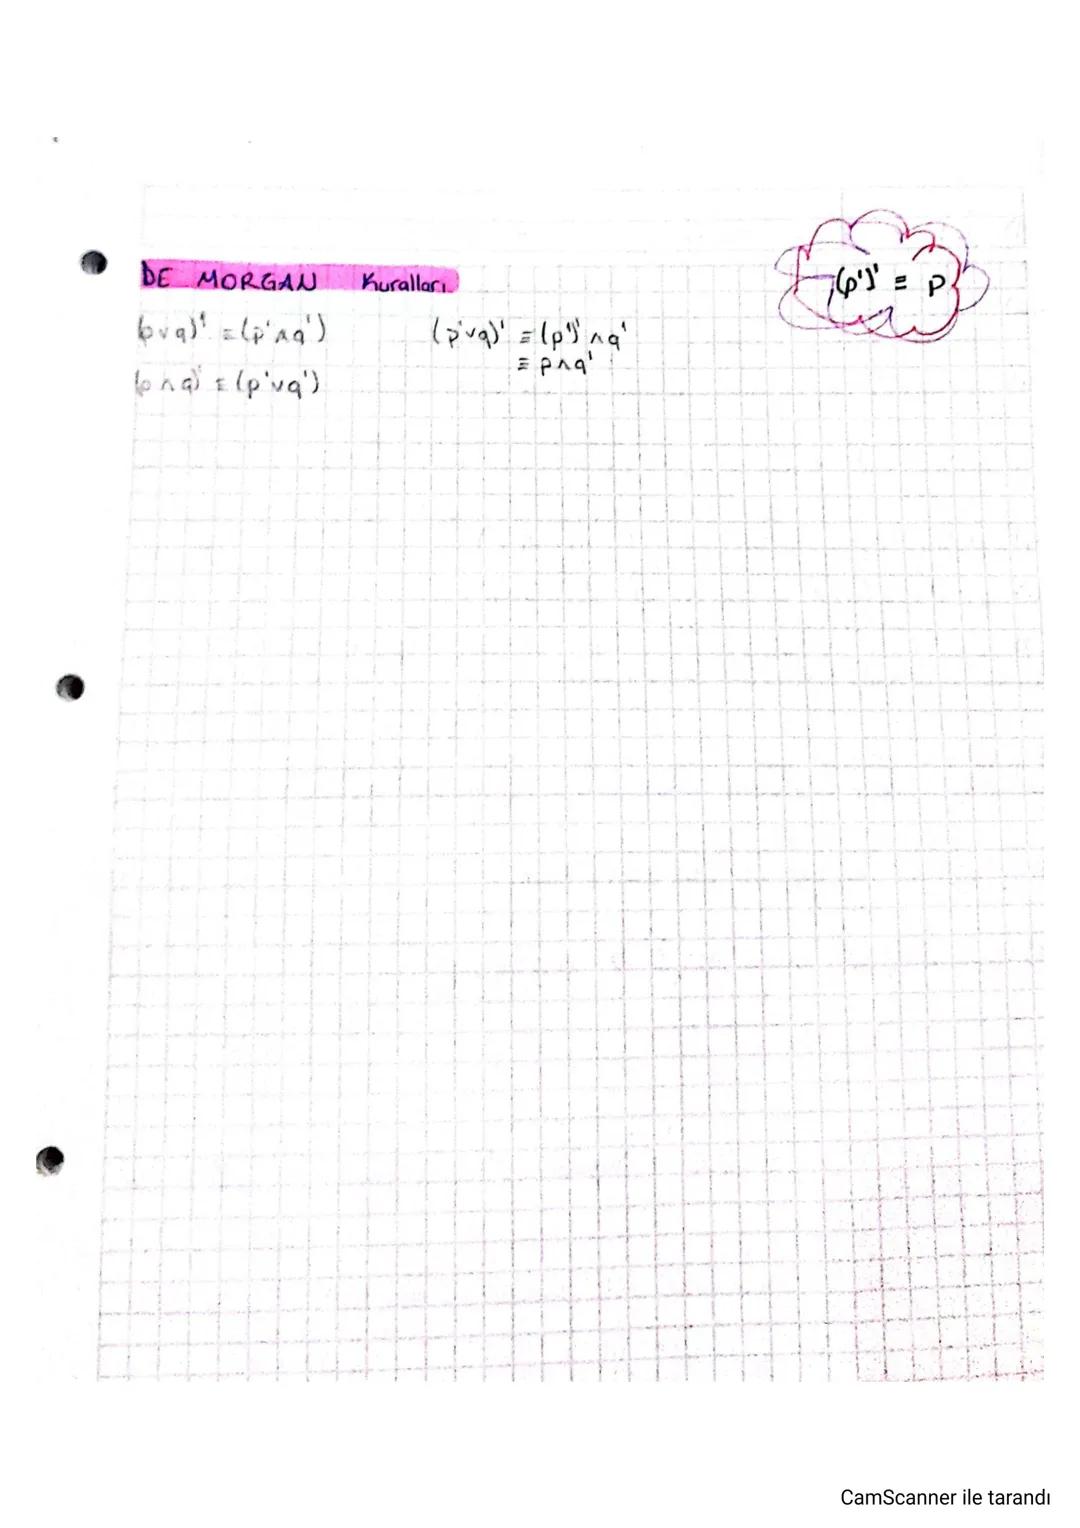 DE MORGAN Kuralları
(p')' ≡ p
(p∨q)' ≡ (p'∧q')
(p∧q)' ≡ (p'∨q')
(p'∨q)' ≡ (p')' ∧q'
≡ p∧q'
CamScanner ile tarandı